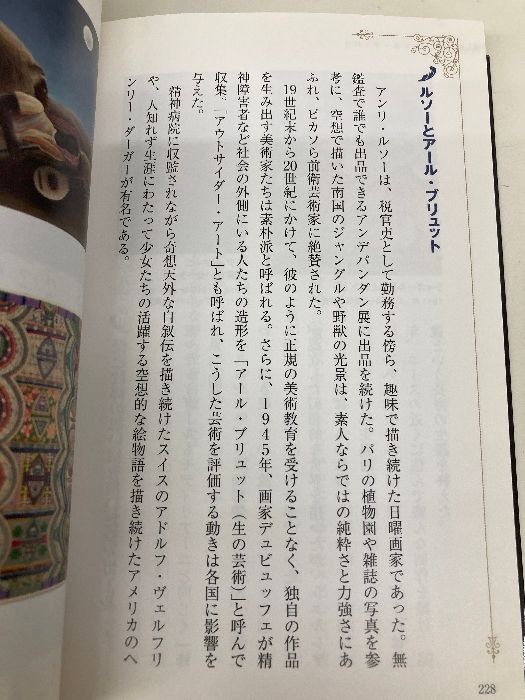 ルソーとアール・ブリュット
アンリ・ルソーは、税官吏として勤務する傍ら、趣味で描き続けた日曜画家であった。無
鑑査で誰でも出品できるアンデパンダン展に出品を続けた。パリの植物園や雑誌の写真を参
考に、空想で描いた南国のジャングルや野獣の光景は、素人ならではの純粋さと力強さにあ
ふれ、ピカソら前衛芸術家に絶賛された。
19世紀末から20世紀にかけて、彼のように正規の美術教育を受けることなく、独自の作品
を生み出す美術家たちは素朴派と呼ばれる。さらに、1945年、画家デュビュッフェが精
神障害者など社会の外側にいる人たちの造形を「アール・ブリュット（生の芸術）」と呼んで
収集。「アウトサイダー・アート」とも呼ばれ、こうした芸術を評価する動きは各国に影響を
与えた。
精神病院に収監されながら奇想天外な自叙伝を描き続けたスイスのアドルフ・ヴェルフリ
や、人知れず生涯にわたって少女たちの活躍する空想的な絵物語を描き続けたアメリカのヘ
ンリー・ダーガーが有名である。
228